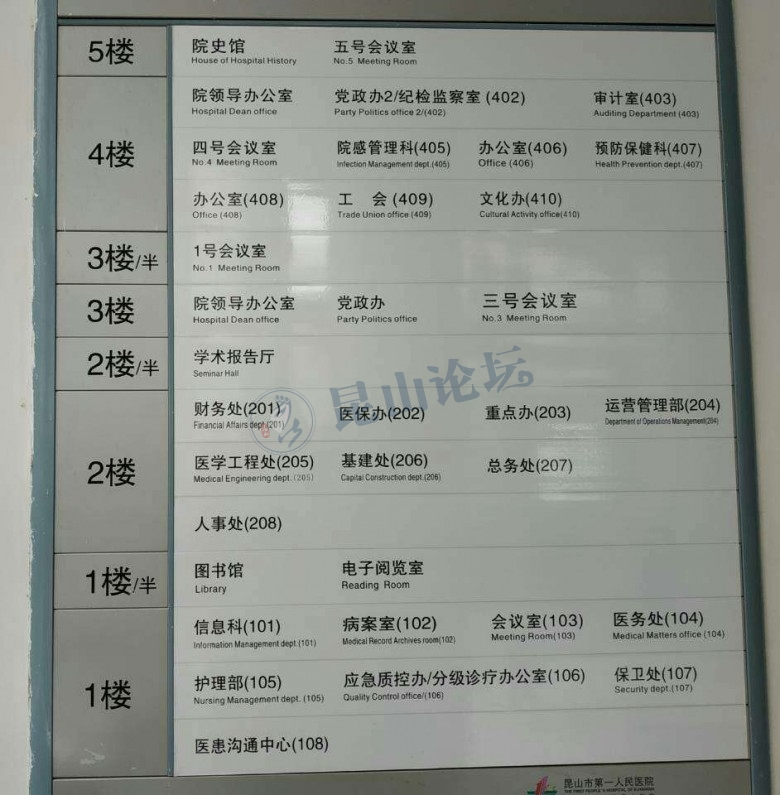 5楼
院史馆 五号会议室
House of Hospital History No.5 Meeting Room
4楼
院领导办公室 党政办2/纪检监察室 (402) 审计室(403)
Hospital Dean office Party Politics office 2/(402) Auditing Department (403)
四号会议室 院感管理科(405) 办公室(406) 预防保健科(407)
No.4 Meeting Room Infection Management dept.(405) Office (406) Health Prevention dept.(407)
办公室(408) 工 会 (409) 文化办(410)
Office (408) Trade Union office (409) Cultural Activity office(410)
3楼/半
1号会议室
No.1 Meeting Room
3楼
院领导办公室 党政办 三号会议室
Hospital Dean office Party Politics office No.3 Meeting Room
2楼/半
学术报告厅
Seminar Hall
昆山论坛
2楼
财务处(201) 医保办(202) 重点办(203) 运营管理部(204)
Financial Affairs dept.(201) Department of Operations Management(204)
医学工程处(205) 基建处(206) 总务处(207)
Medical Engineering dept. (205) Capital Construction dept.(206)
人事处(208)
1楼/半
图书馆 电子阅览室
Library Reading Room
1楼
信息科(101) 病案室(102) 会议室(103) 医务处(104)
Information Management dept.(101) Medical Record Archives room(102) Meeting Room(103) Medical Matters office (104)
护理部(105) 应急质控办/分级诊疗办公室(106) 保卫处(107)
Nursing Management dept. (105) Quality Control office/(106) Security dept.(107)
医患沟通中心(108)
昆山市第一人民医院